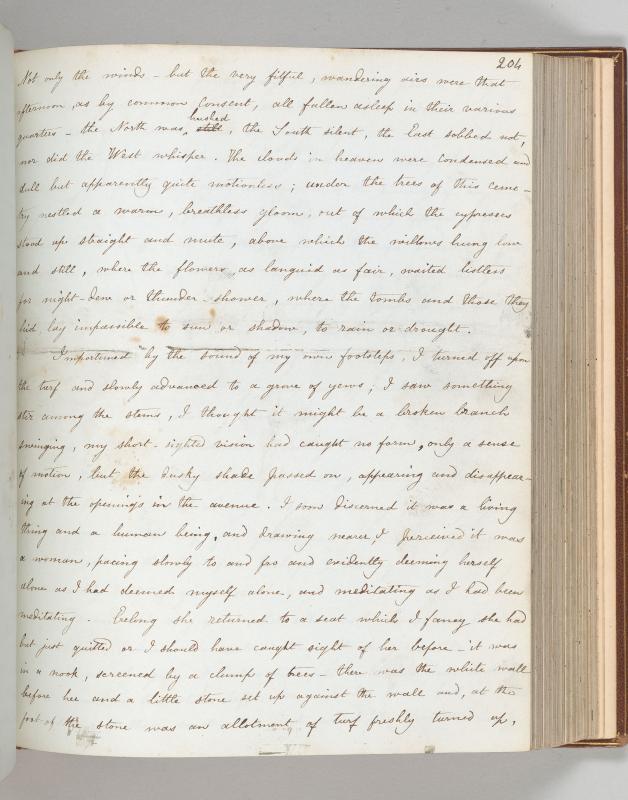 204
Not only the winds – but the very fitful, wandering airs were that
afternoon, as by common consent, all fallen asleep in their various
hushed
quarters – the North was still, the South silent, the East sobbed not,
nor did the West whisper. The clouds in heaven were condensed and
dull but apparently quite motionless; under the trees of this ceme-
try nestled a warm, breathless gloom, out of which the cypresses
stood up straight and mute, above which the willows hung low
and still, where the flowers, as languid as fair, waited listless
for night-dew or thunder-shower, where the tombs and those they
hid lay impassible to sun or shadow, to rain or drought.
Importuned by the sound of my own footsteps, I turned off upon
the turf and slowly advanced to a grove of yews; I saw something
stir among the stems, I thought it might be a broken branch
swinging, my short-sighted vision had caught no form, only a sense
of motion, but the dusky shade passed on, appearing and disappear-
ing at the openings in the avenue. I soon discerned it was a living
thing and a human being, and drawing nearer I perceived it was
a woman, pacing slowly to and fro and evidently deeming herself
alone as I had deemed myself alone, and meditating as I had been
meditating. Ereling she returned to a seat which I fancy she had
but just quitted or I should have caught sight of her before – it was
in a nook, screened by a clump of trees – there was the white wall
before her and a little stone set up against the wall and, at the
foot of the stone was an allotment of turf freshly turned up,